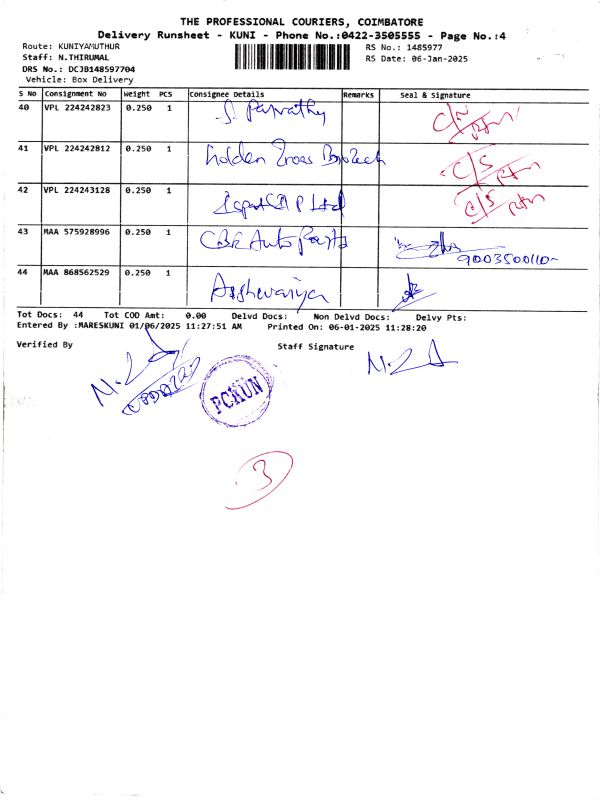 THE PROFESSIONAL COURIERS, COIMBATORE
Delivery Runsheet - KUNI - Phone No.:0422-3505555 - Page No.:4
Route: KUNIYAMUTHUR
RS No.: 1485977
Staff: N.THIRUMAL
RS Date: 06-Jan-2025
DRS No.: DCJB148597704
Vehicle: Box Delivery
S No Consignment No Weight PCS Consignee Details Remarks Seal & Signature
40 VPL 224242823 0.250 1 S. Parvathy
41 VPL 224242812 0.250 1 Golden Cross C/S
42 VPL 224243128 0.250 1 P Ltd C/S
43 MAA 575928996 0.250 1 CBE Auto Parts
9003500110
44 MAA 868562529 0.250 1 Aishwariya
Tot Docs: 44 Tot COD Amt: 0.00 Delvd Docs: Non Delvd Docs: Delvy Pts:
Entered By :MARESKUNI 01/06/2025 11:27:51 AM Printed On: 06-01-2025 11:28:20
Verified By Staff Signature
PCKUN
3